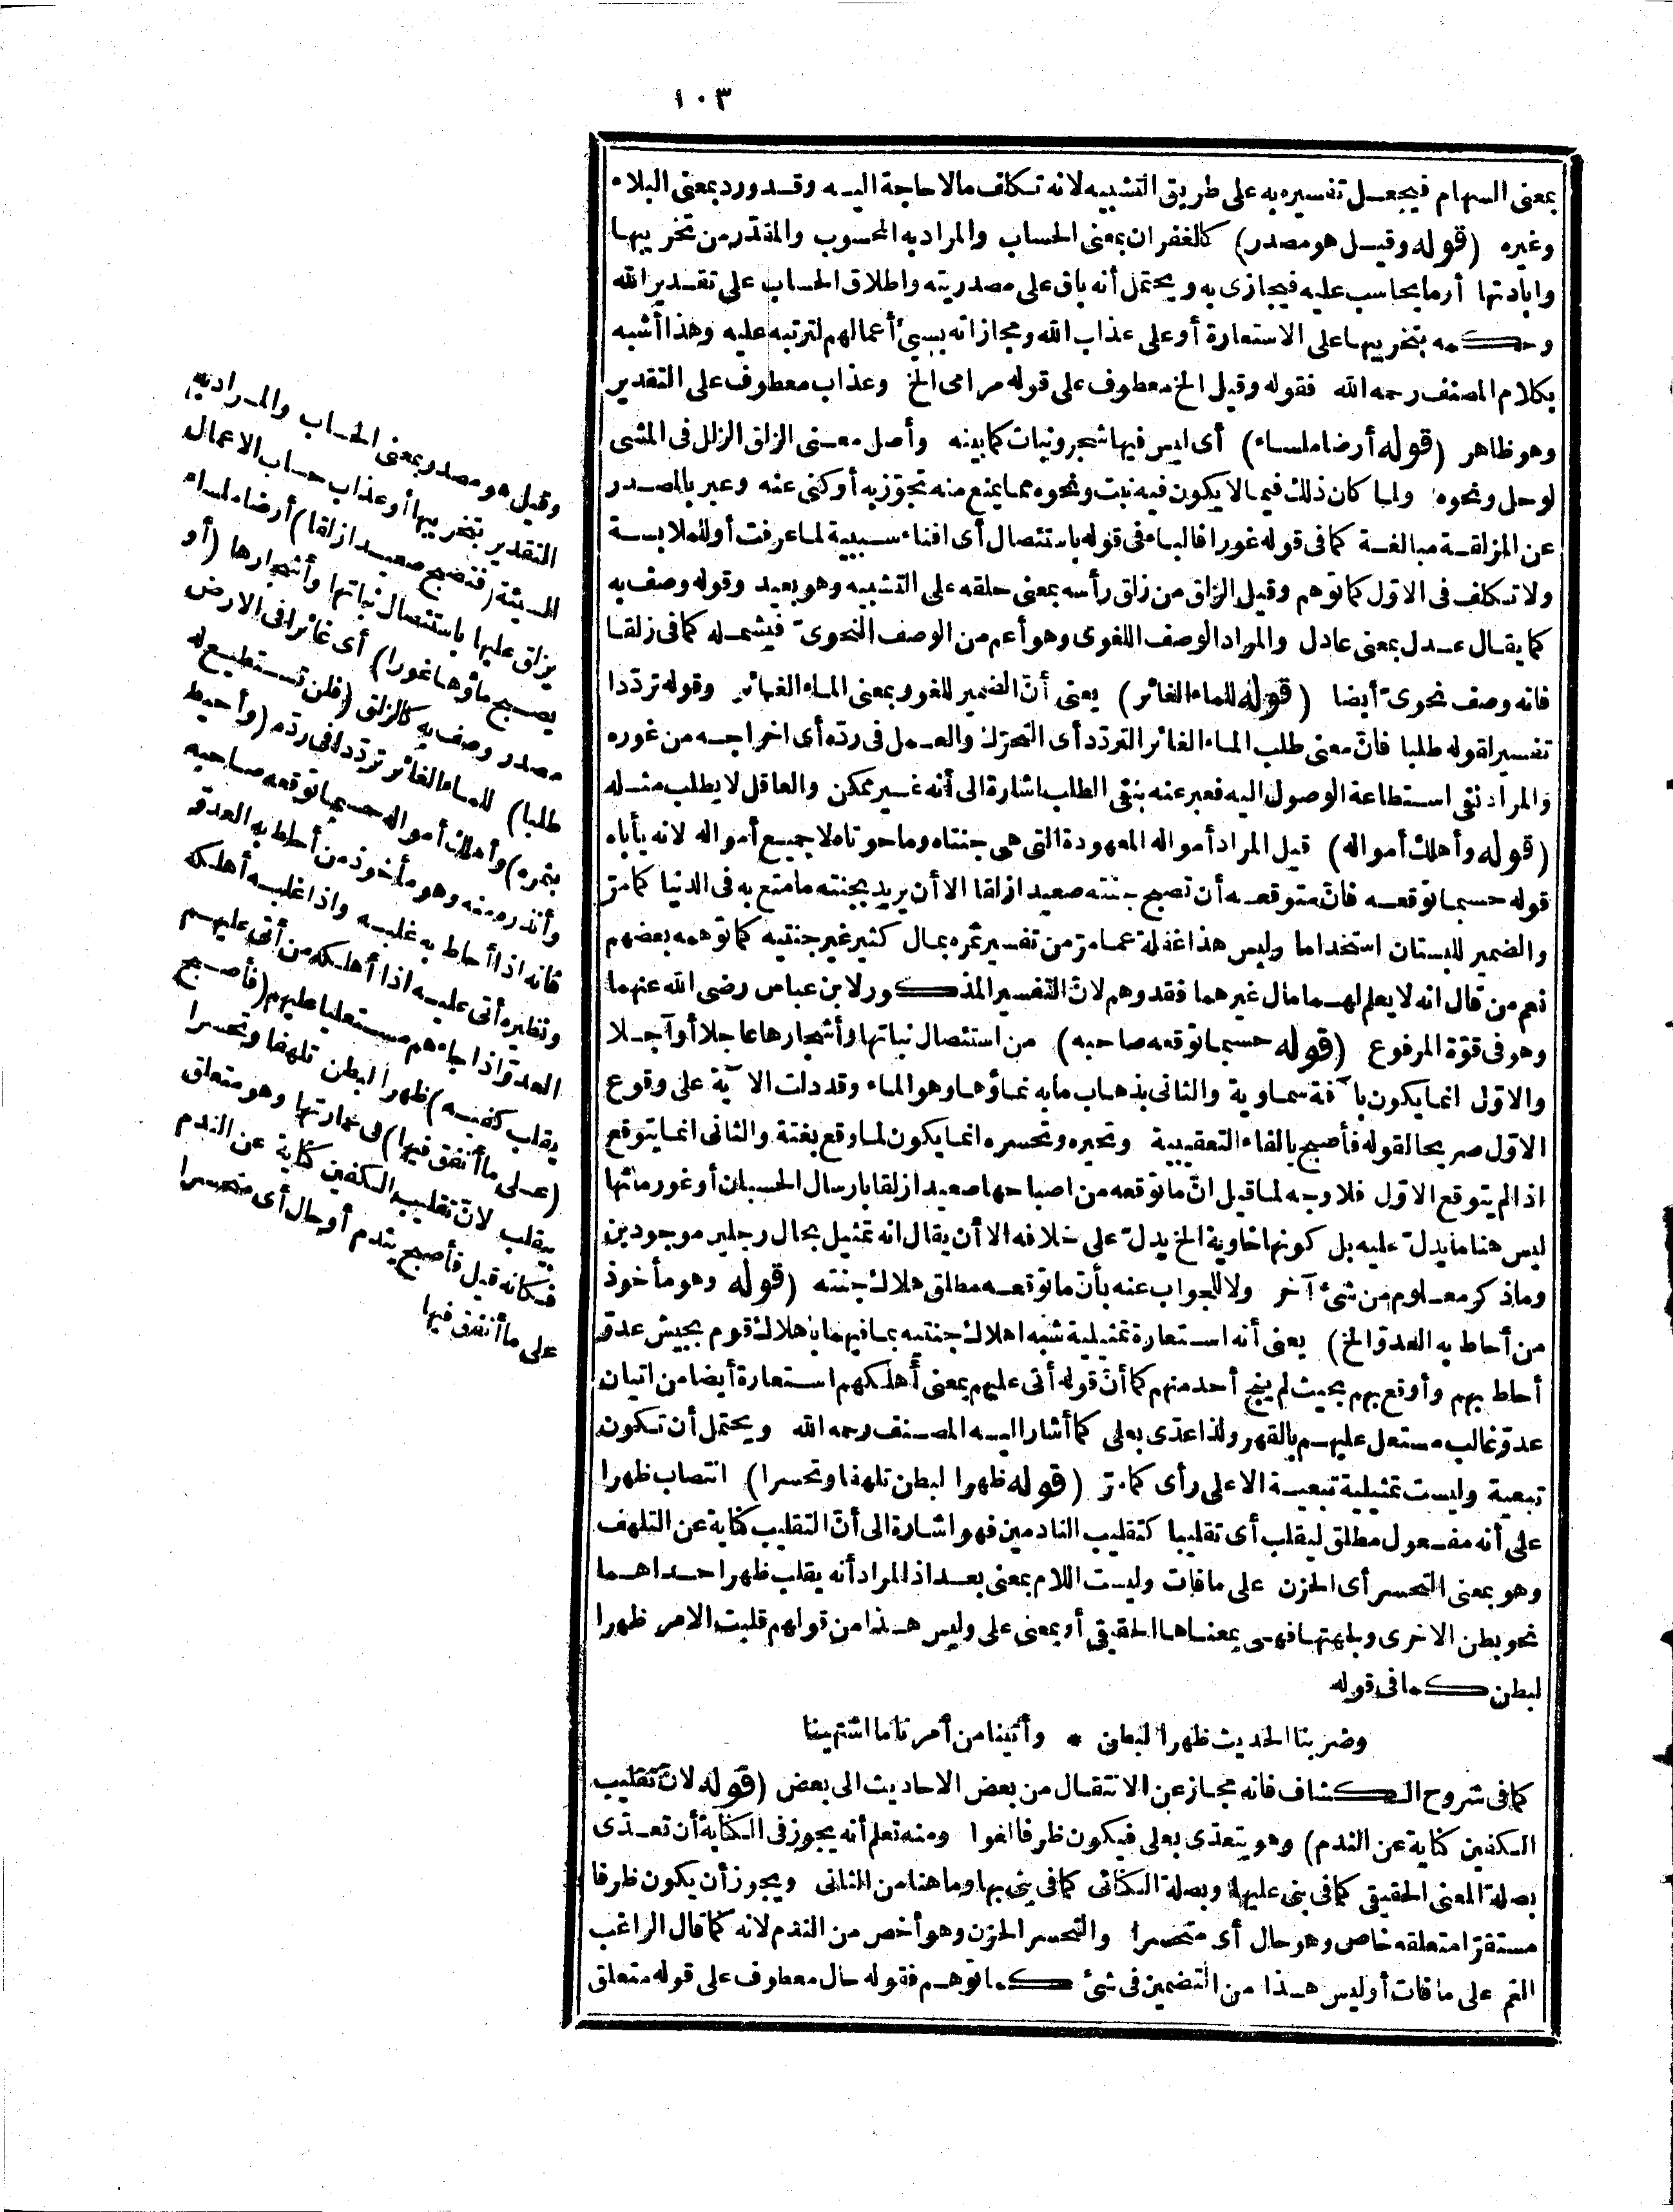 ١٠٣
بمعنى السهام فيجعل تفسيره به على طريق التشبيه لانه تكلف مالا حاجة اليه وقد ورد بمعنى البلاء
وغيره (قوله وقيل هو مصدر) كالغفران بمعنى الحساب والمراد به المحسوب والمقدر من تخريبها
وابادتها أو ما يحاسب عليه فيجازى به ويحتمل أنه باق على مصدريته واطلاق الحساب على تقدير الله
وحكمه بتخريبها على الاستعارة أو على عذاب الله ومجازاته بسيئ أعمالهم لترتبه عليه وهذا أشبه
بكلام المصنف رحمه الله فقوله وقيل الخ معطوف على قوله مرامى الخ وعذاب معطوف على التقدير
وهو ظاهر (قوله أرضا ملساء) أى ليس فيها شجر ونبات كما بينه وأصل معنى الزلق الزلل فى المشى
لوحل ونحوه ولما كان ذلك فيما لا يكون فيه نبت ونحوه مما يمنع منه تجوّز به أو كنى عنه وعبر بالمصدر
عن المزلقة مبالغة كما فى قوله غورا فالباء فى قوله باستئصال أى افناء سببية لما عرفت أو للملابسة
ولا تكلف فى الاوّل كما توهم وقيل الزلق من زلق رأسه بمعنى حلقه على التشبيه وهو بعيد وقوله وصف به
كما يقال عدل بمعنى عادل والمراد الوصف اللغوى وهو أعم من الوصف النحوىّ فيشمله كما فى زلقا
فانه وصف نحوىّ أيضا (قوله للماء الغائر) يعنى أنّ الضمير للغور بمعنى الماء الغائر وقوله تردّدا
تفسير لقوله طلبا فانّ معنى طلب الماء الغائر التردّد أى التحرّك والعمل فى ردّه أى اخراجه من غوره
والمراد نفى استطاعة الوصول اليه فعبر عنه بنفى الطلب اشارة الى أنه غير ممكن والعاقل لا يطلب مثله
(قوله وأهلك أمواله) قيل المراد أمواله المعهودة التى هى جنتاه وما حوتاه لا جميع أمواله لانه يأباه
قوله حسبما توقعه فانّ متوقعه أن تصبح جنته صعيدا زلقا الا أن يريد بجنته ما متع به فى الدنيا كما مرّ
والضمير للبستان استخداما وليس هذا غفلة عما مرّ من تفسير ثمره بمال كثير غير جنتيه كما توهمه بعضهم
نعم من قال انه لا يعلم لهما مال غيرهما فقد وهم لانّ التفسير المذكور لابن عباس رضى الله عنهما
وهو فى قوّة المرفوع (قوله حسبما توقعه صاحبه) من استئصال نباتها وأشجارها عاجلا أو آجلا
والاوّل انما يكون بآفة سماوية والثانى بذهاب ما به نماؤها وهو الماء وقد دلت الآية على وقوع
الاوّل صريحا لقوله فأصبح بالفاء التعقيبية وتحيره وتحسره انما يكون لما وقع بغتة والثانى انما يتوقع
اذا لم يتوقع الاوّل فلا وجه لما قيل انّ ما توقعه من اصباحها صعيدا زلقا بارسال الحسبان أو غور مائها
ليس هنا ما يدلّ عليه بل كونها خاوية الخ يدلّ على خلافه الا أن يقال انه تمثيل بحال رجلين موجودين
وما ذكر معلوم من شئ آخر ولا للجواب عنه بأنّ ما توقعه مطلق هلاك جنته (قوله وهو مأخوذ
من أحاط به العدوّ الخ) يعنى أنه استعارة تمثيلية شبه اهلاك جنتيه بما فيهما باهلاك قوم بجيش عدوّ
أحاط بهم وأوقع بهم بحيث لم ينج أحد منهم كما أنّ قوله أتى عليهم بمعنى أهلكهم استعارة أيضا من اتيان
عدوّ غالب مستعل عليهم بالقهر ولذا عدّى بعلى كما أشار اليه المصنف رحمه الله ويحتمل أن تكون
تبعية وليست تمثيلية تبعية الا على رأى كما مرّ (قوله ظهرا لبطن تلهفا وتحسرا) انتصاب ظهرا
على أنه مفعول مطلق ليقلب أى تقليبا كتقليب النادمين فهو اشارة الى أنّ التقليب كناية عن التلهف
وهو بمعنى التحسر أى الحزن على ما فات وليست اللام بمعنى بعد اذ المراد أنه يقلب ظهر احداهما
نحو بطن الاخرى ولجهتها فهى بمعناها الحقيقى أو بمعنى على وليس هذا من قولهم قلبت الامر ظهرا
لبطن كما فى قوله
وضربنا الحديث ظهرا لبطن * وأتينا من أمرنا ما اشتهينا
كما فى شروح الكشاف فانه مجاز عن الانتقال من بعض الاحاديث الى بعض (قوله لانّ تقليب
الكفين كناية عن الندم) وهو يتعدّى بعلى فيكون ظرفا لغوا ومنه تعلم أنه يجوز فى الكناية أن تعدّى
بصلة المعنى الحقيقى كما فى بنى عليها وبصلة الكنائى كما فى بنى بها وما هنا من الثانى ويجوز أن يكون ظرفا
مستقرّا متعلقه خاص وهو حال أى متحسرا والتحسر الحزن وهو أخص من الندم لانه كما قال الراغب
الغم على ما فات أو ليس هذا من التضمين فى شئ كما توهم فقوله حال معطوف على قوله متعلق
وقيل هو مصدر بمعنى الحساب والمراد به
التقدير بتخريبها أو عذاب حساب الاعمال
السيئة (فتصبح صعيدا زلقا) أرضا ملساء
يزلق عليها باستئصال نباتها وأشجارها (أو
يصبح ماؤها غورا) أى غائرا فى الارض
مصدر وصف به كالزلق (فلن تستطيع له
طلبا) للماء الغائر تردّدا فى ردّه (وأحيط
بثمره) وأهلك أمواله حسبما توقعه صاحبه
وأنذره منه وهو مأخوذ من أحاط به العدوّ
فانه اذا أحاط به غلبه واذا غلبه أهلكه
ونظيره أتى عليه اذا أهلكه من أتى عليهم
العدوّ اذا جاءهم مستعليا عليهم (فأصبح
يقلب كفيه) ظهرا لبطن تلهفا وتحسرا
(على ما أنفق فيها) فى عمارتها وهو متعلق
بيقلب لانّ تقليب الكفين كناية عن الندم
فكأنه قيل فأصبح يندم أو حال أى متحسرا
على ما أنفق فيها